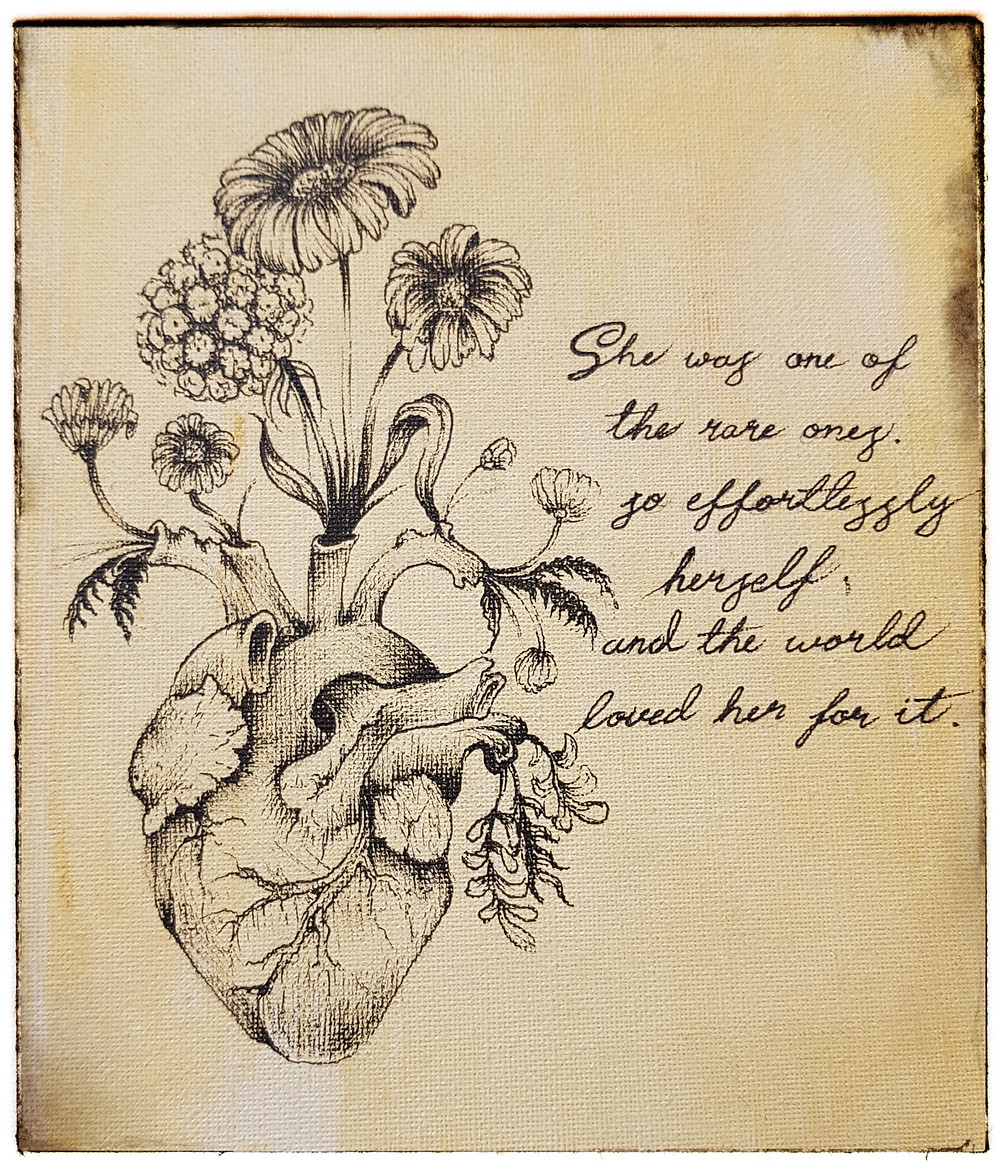 She was one of
the rare ones.
so effortlessly
herself.
and the world
loved her for it.